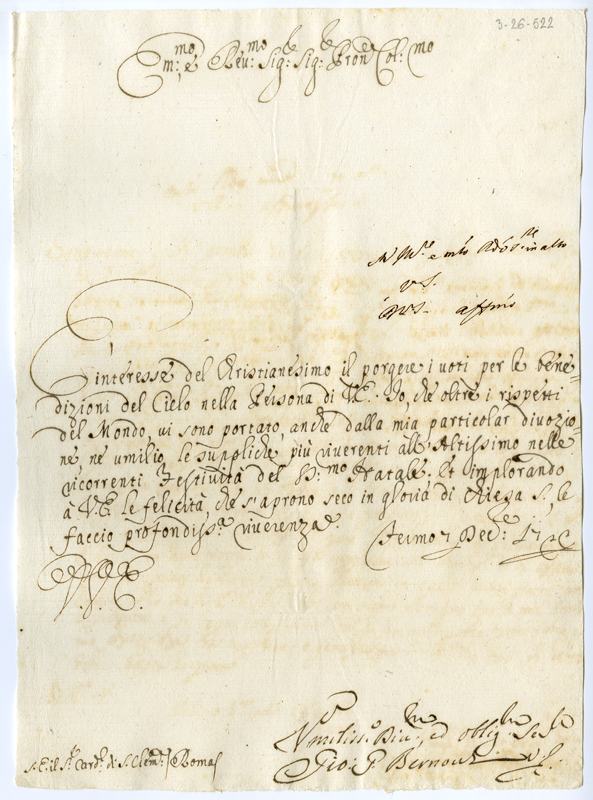 3-26-522
Em:mo é Reu:mo Sig:re Sig:re Pron:e Col:mo
É interesse del Cristianesimo il porgere i voti per le bene=
dizioni del Cielo nella Persona di V.E. Io, che oltre i rispetti
del Mondo, vi sono portato, anche dalla mia particolar divozio=
ne, ne umilio le suppliche più riverenti all'Altissimo nelle
ricorrenti Festività del SS:mo Natale. Et implorando
à V.E. le felicità, che s'aprono seco in gloria di Chiesa S., le
faccio profondiss:a riverenza.
Fermo 7 Dec:e
V. E.
Vmiliss:o Diu:mo, ed oblig:mo Se:re
Gio: F. Bernou
S.E. il S:r Card: di S. Clem:te / Roma